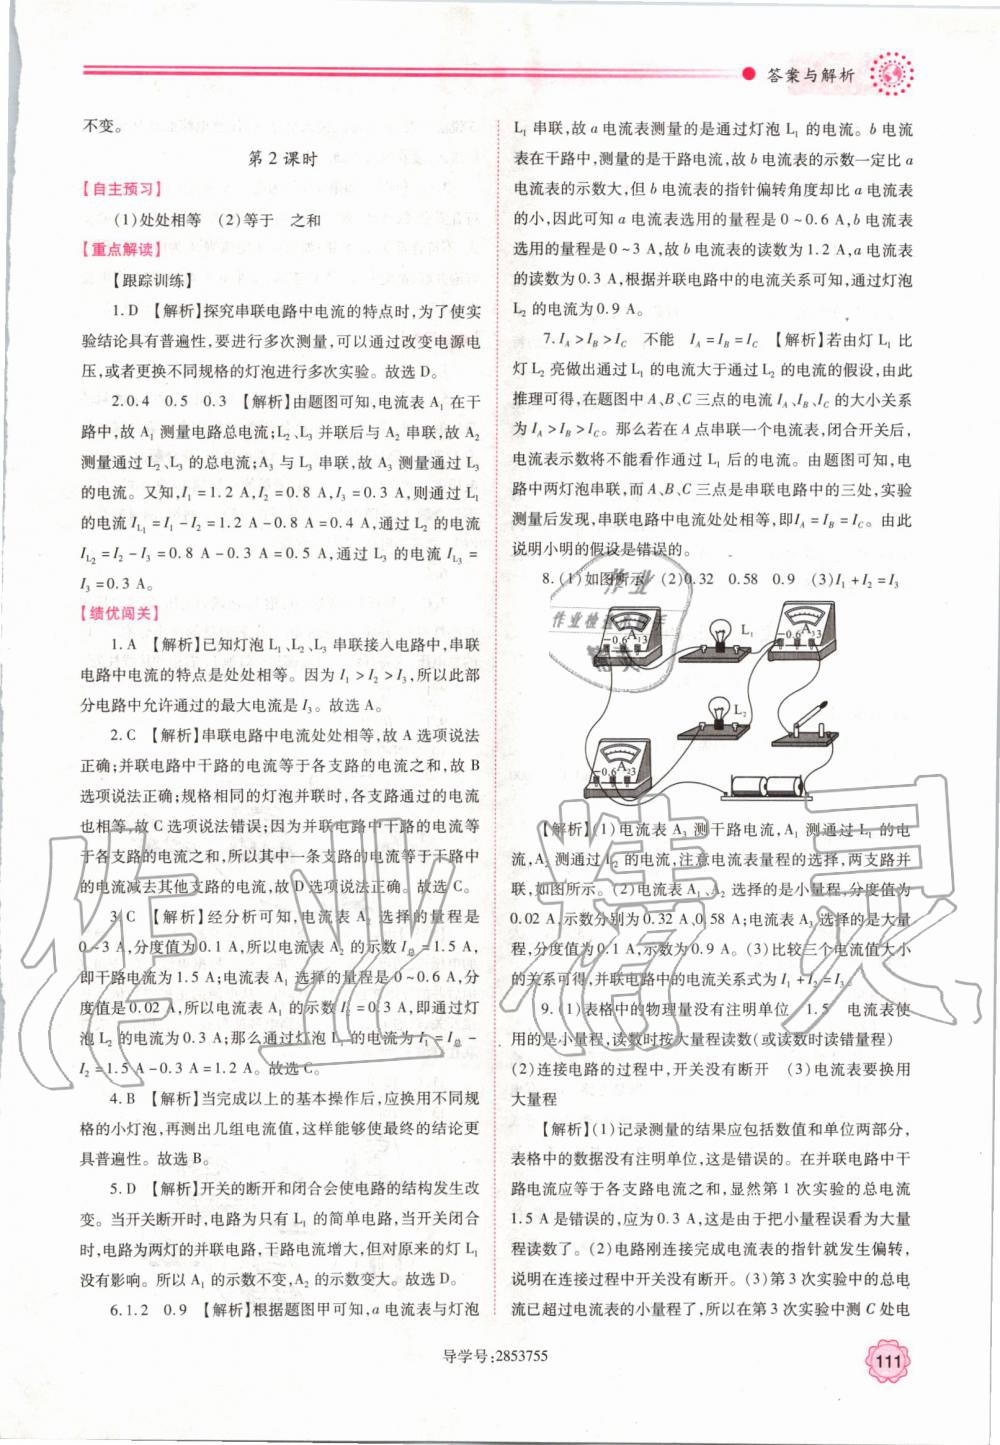 答案与解析
不变。
第2课时
【自主预习】
(1)处处相等 (2)等于 之和
【重点解读】
【跟踪训练】
1.D 【解析】探究串联电路中电流的特点时,为了使实
验结论具有普遍性,要进行多次测量,可以通过改变电源电
压,或者更换不同规格的灯泡进行多次实验。故选D。
2.0.4 0.5 0.3 【解析】由题图可知,电流表A₁在干
路中,故A₁测量电路总电流;L₂、L₃并联后与A₂串联,故A₂
测量通过L₂、L₃的总电流;A₃与L₃串联,故A₃测量通过L₃
的电流。又知,I₁=1.2 A,I₂=0.8 A,I₃=0.3 A,则通过L₁
的电流I_L₁=I₁-I₂=1.2 A-0.8 A=0.4 A,通过L₂的电流
I_L₂=I₂-I₃=0.8 A-0.3 A=0.5 A,通过L₃的电流I_L₃=
I₃=0.3 A。
【绩优闯关】
1.A 【解析】已知灯泡L₁、L₂、L₃串联接入电路中,串联
电路中电流的特点是处处相等。因为I₁>I₂>I₃,所以此部
分电路中允许通过的最大电流是I₃。故选A。
2.C 【解析】串联电路中电流处处相等,故A选项说法
正确;并联电路中干路的电流等于各支路的电流之和,故B
选项说法正确;规格相同的灯泡并联时,各支路通过的电流
也相等,故C选项说法错误;因为并联电路中干路的电流等
于各支路的电流之和,所以其中一条支路的电流等于干路中
的电流减去其他支路的电流,故D选项说法正确。故选C。
3.C 【解析】经分析可知,电流表A₂选择的量程是
0~3 A,分度值为0.1 A,所以电流表A₂的示数I总=1.5 A,
即干路电流为1.5 A;电流表A₁选择的量程为0~0.6 A,分
度值是0.02 A,所以电流表A₁的示数I₂=0.3 A,即通过灯
泡L₂的电流为0.3 A;那么通过灯泡L₁的电流为I₁=I总-
I₂=1.5 A-0.3 A=1.2 A。故选C。
4.B 【解析】当完成以上的基本操作后,应换用不同规
格的小灯泡,再测出几组电流值,这样能够使最终的结论更
具普遍性。故选B。
5.D 【解析】开关的断开和闭合会使电路的结构发生改
变。当开关断开时,电路为只有L₁的简单电路,当开关闭合
时,电路为两灯的并联电路,干路电流增大,但对原来的灯L₁
没有影响。所以A₁的示数不变,A₂的示数变大。故选D。
6.1.2 0.9 【解析】根据题图甲可知,a电流表与灯泡
L₁串联,故a电流表测量的是通过灯泡L₁的电流。b电流
表在干路中,测量的是干路电流,故b电流表的示数一定比a
电流表的示数大,但b电流表的指针偏转角度却比a电流表
的小,因此可知a电流表选用的量程是0~0.6 A,b电流表
选用的量程是0~3 A,故b电流表的读数为1.2 A,a电流表
的读数为0.3 A,根据并联电路中的电流关系可知,通过灯泡
L₂的电流为0.9 A。
7.I_A>I_B>I_C 不能 I_A=I_B=I_C 【解析】若由灯L₁比
灯L₂亮做出通过L₁的电流大于通过L₂的电流的假设,由此
推理可得,在题图中A、B、C三点的电流I_A、I_B、I_C的大小关系
为I_A>I_B>I_C。那么若在A点串联一个电流表,闭合开关后,
电流表示数将不能看作通过L₁后的电流。由题图可知,电
路中两灯泡串联,而A、B、C三点是串联电路中的三处,实验
测量后发现,串联电路中电流处处相等,即I_A=I_B=I_C。由此
说明小明的假设是错误的。
8.(1)如图所示 (2)0.32 0.58 0.9 (3)I₁+I₂=I₃
A
-0.6 3
L₁
A
-0.6 3
L₂
A
-0.6 3
【解析】(1)电流表A₃测干路电流,A₁测通过L₁的电
流,A₂测通过L₂的电流,注意电流表量程的选择,两支路并
联,如图所示。(2)电流表A₁、A₂选择的是小量程,分度值为
0.02 A,示数分别为0.32 A、0.58 A;电流表A₃选择的是大量
程,分度值为0.1 A,示数为0.9 A。(3)比较三个电流值大小
的关系可得,并联电路中的电流关系式为I₁+I₂=I₃。
9.(1)表格中的物理量没有注明单位 1.5 电流表使
用的是小量程,读数时按大量程读数(或读数时读错量程)
(2)连接电路的过程中,开关没有断开 (3)电流表要换用
大量程
【解析】(1)记录测量的结果应包括数值和单位两部分,
表格中的数据没有注明单位,这是错误的。在并联电路中干
路电流应等于各支路电流之和,显然第1次实验的总电流
1.5 A是错误的,应为0.3 A,这是由于把小量程误看为大量
程读数了。(2)电路刚连接完成电流表的指针就发生偏转,
说明在连接过程中开关没有断开。(3)第3次实验中的总电
流已超过电流表的小量程了,所以在第3次实验中测C处电
导学号:2853755
111
作业精灵
作业
作业检查小助手
精灵